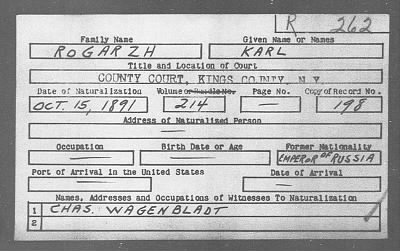 R 262
Family Name Given Name or Names
ROGARZH KARL
Title and Location of Court
COUNTY COURT, KINGS COUNTY, N.Y.
Date of Naturalization Volume or Bundle No. Page No. Copy of Record No.
OCT. 15, 1891 214 — 198
Address of Naturalized Person
—
Occupation Birth Date or Age Former Nationality
— — EMPEROR OF RUSSIA
Port of Arrival in the United States Date of Arrival
— —
Names, Addresses and Occupations of Witnesses To Naturalization
1 CHAS. WAGENBLADT
2